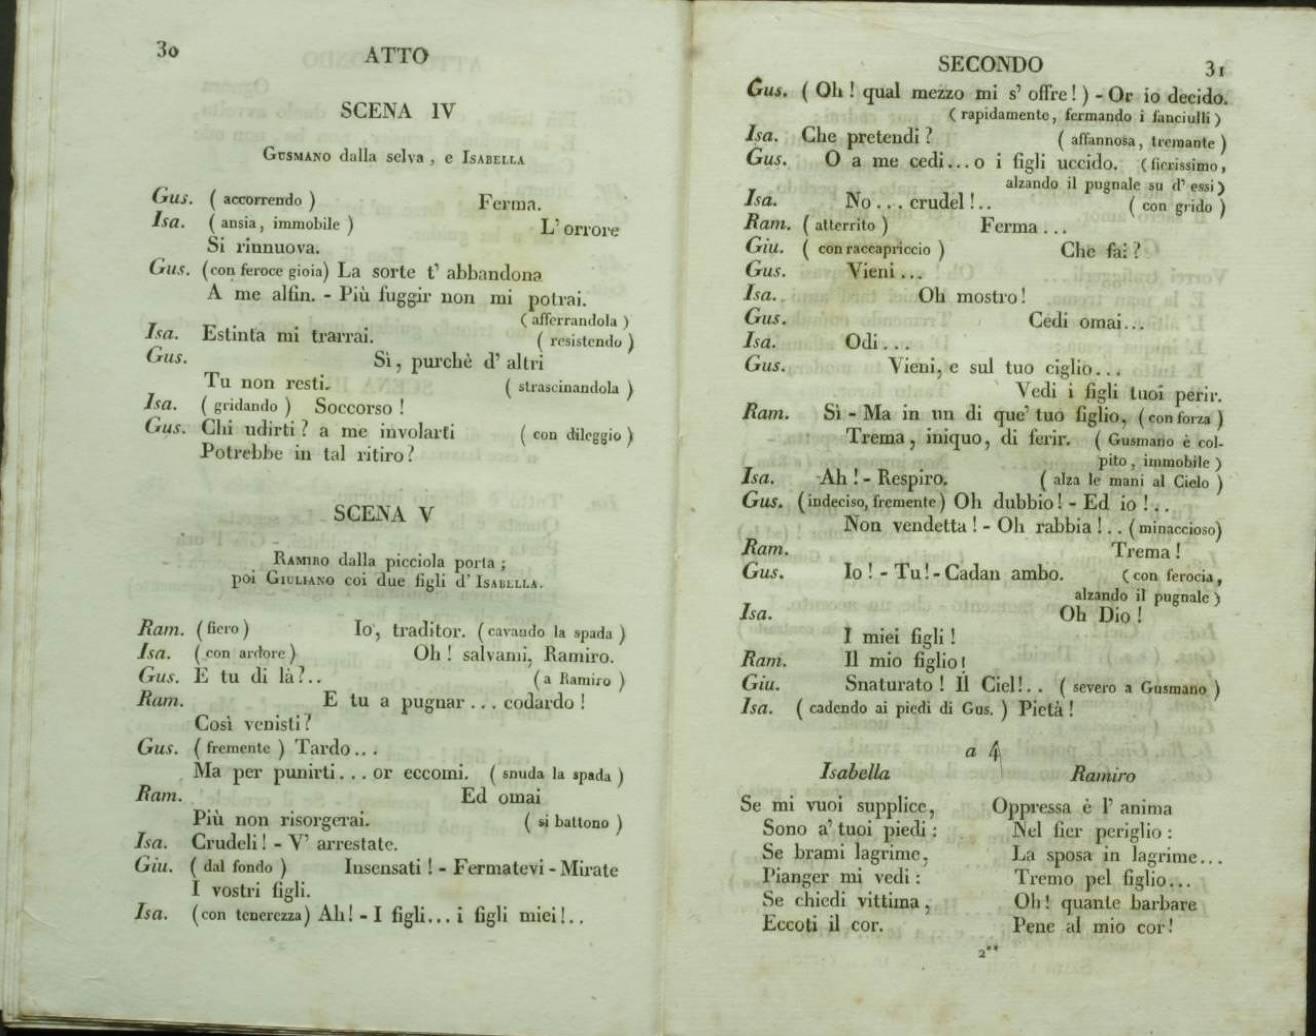 30
ATTO
SCENA IV
Gusmano dalla selva, e Isabella
Gus. (accorrendo) Ferma.
Isa. (ansia, immobile) L'orrore
Si rinnuova.
Gus. (con feroce gioia) La sorte t'abbandona
A me alfin. - Più fuggir non mi potrai.
(afferrandola)
Isa. Estinta mi trarrai. (resistendo)
Gus. Sì, purchè d'altri
Tu non resti. (strascinandola)
Isa. (gridando) Soccorso!
Gus. Chi udirti? a me involarti (con dileggio)
Potrebbe in tal ritiro?
SCENA V
Ramiro dalla picciola porta;
poi Giuliano coi due figli d'Isabella.
Ram. (fiero) Io, traditor. (cavando la spada)
Isa. (con ardore) Oh! salvami, Ramiro.
Gus. E tu di là?.. (a Ramiro)
Ram. E tu a pugnar... codardo!
Così venisti?
Gus. (fremente) Tardo...
Ma per punirti... or eccomi. (snuda la spada)
Ram. Ed omai
Più non risorgerai. (si battono)
Isa. Crudeli! - V'arrestate.
Giu. (dal fondo) Insensati! - Fermatevi - Mirate
I vostri figli.
Isa. (con tenerezza) Ah! - I figli... i figli miei!..
SECONDO
31
Gus. (Oh! qual mezzo mi s'offre!) - Or io decido.
(rapidamente, fermando i fanciulli)
Isa. Che pretendi? (affannosa, tremante)
Gus. O a me cedi... o i figli uccido. (fierissimo,
alzando il pugnale su d'essi)
Isa. No... crudel!.. (con grido)
Ram. (atterrito) Ferma...
Giu. (con raccapriccio) Che fai?
Gus. Vieni...
Isa. Oh mostro!
Gus. Cedi omai...
Isa. Odi...
Gus. Vieni, e sul tuo ciglio...
Vedi i figli tuoi perir.
Ram. Sì - Ma in un di que' tuo figlio, (con forza)
Trema, iniquo, di ferir. (Gusmano è col-
pito, immobile)
Isa. Ah! - Respiro. (alza le mani al Cielo)
Gus. (indeciso, fremente) Oh dubbio! - Ed io!..
Non vendetta! - Oh rabbia!.. (minaccioso)
Ram. Trema!
Gus. Io! - Tu! - Cadan ambo. (con ferocia,
alzando il pugnale)
Isa. Oh Dio!
I miei figli!
Ram. Il mio figlio!
Giu. Snaturato! Il Ciel!.. (severo a Gusmano)
Isa. (cadendo ai piedi di Gus.) Pietà!
a 4
Isabella
Se mi vuoi supplice,
Sono a' tuoi piedi:
Se brami lagrime,
Pianger mi vedi:
Se chiedi vittima,
Eccoti il cor.
Ramiro
Oppressa è l'anima
Nel fier periglio:
La sposa in lagrime...
Tremo pel figlio...
Oh! quante barbare
Pene al mio cor!
2**